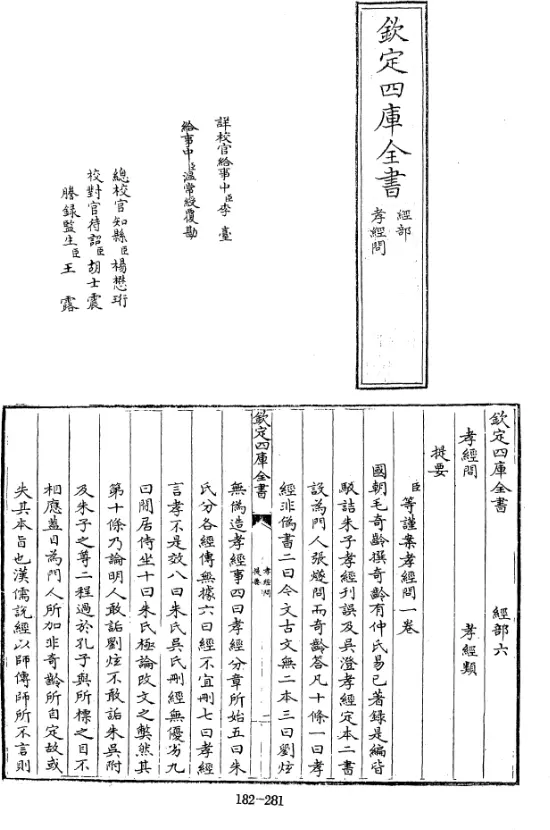 欽定四庫全書
經部
孝經問
詳校官給事中臣李臺
給事中臣溫常綬覆勘
總校官知縣臣楊懋珩
校對官待詔臣胡士震
謄錄監生臣王露
欽定四庫全書 經部六
孝經問 孝經類
提要
臣等謹案孝經問一卷
國朝毛奇齡撰奇齡有仲氏易已著錄是編皆
駁詰朱子孝經刊誤及吳澄孝經定本二書
設為門人張燧問而奇齡答凡十條一曰孝
經非偽書二曰今文古文無二本三曰劉炫
欽定四庫全書
孝經問
提要
一
無偽造孝經事四曰孝經分章所始五曰朱
氏分各經傳無據六曰經不宜刪七曰孝經
言孝不是效八曰朱氏吳氏刪經無優劣九
曰閒居侍坐十曰朱氏極論改文之獘然其
第十條乃論明人敢詬劉炫不敢詬朱吳附
及朱子之尊二程過於孔子與所標之目不
相應蓋目為門人所加非奇齡所自定故或
失其本旨也漢儒說經以師傳師所不言則
182-281